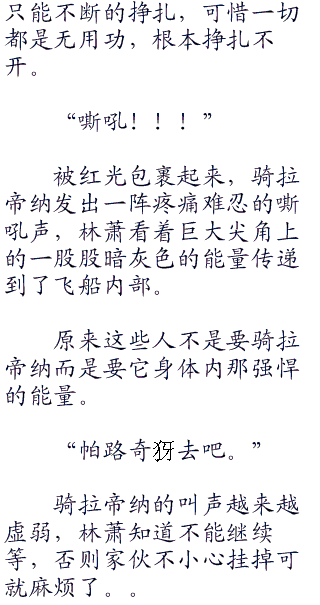 只能不断的挣扎，可惜一切
都是无用功，根本挣扎不
开。
“嘶吼！！！”
被红光包裹起来，骑拉
帝纳发出一阵疼痛难忍的嘶
吼声，林萧看着巨大尖角上
的一股股暗灰色的能量传递
到了飞船内部。
原来这些人不是要骑拉
帝纳而是要它身体内那强悍
的能量。
“帕路奇犽去吧。”
骑拉帝纳的叫声越来越
虚弱，林萧知道不能继续
等，否则家伙不小心挂掉可
就麻烦了。。